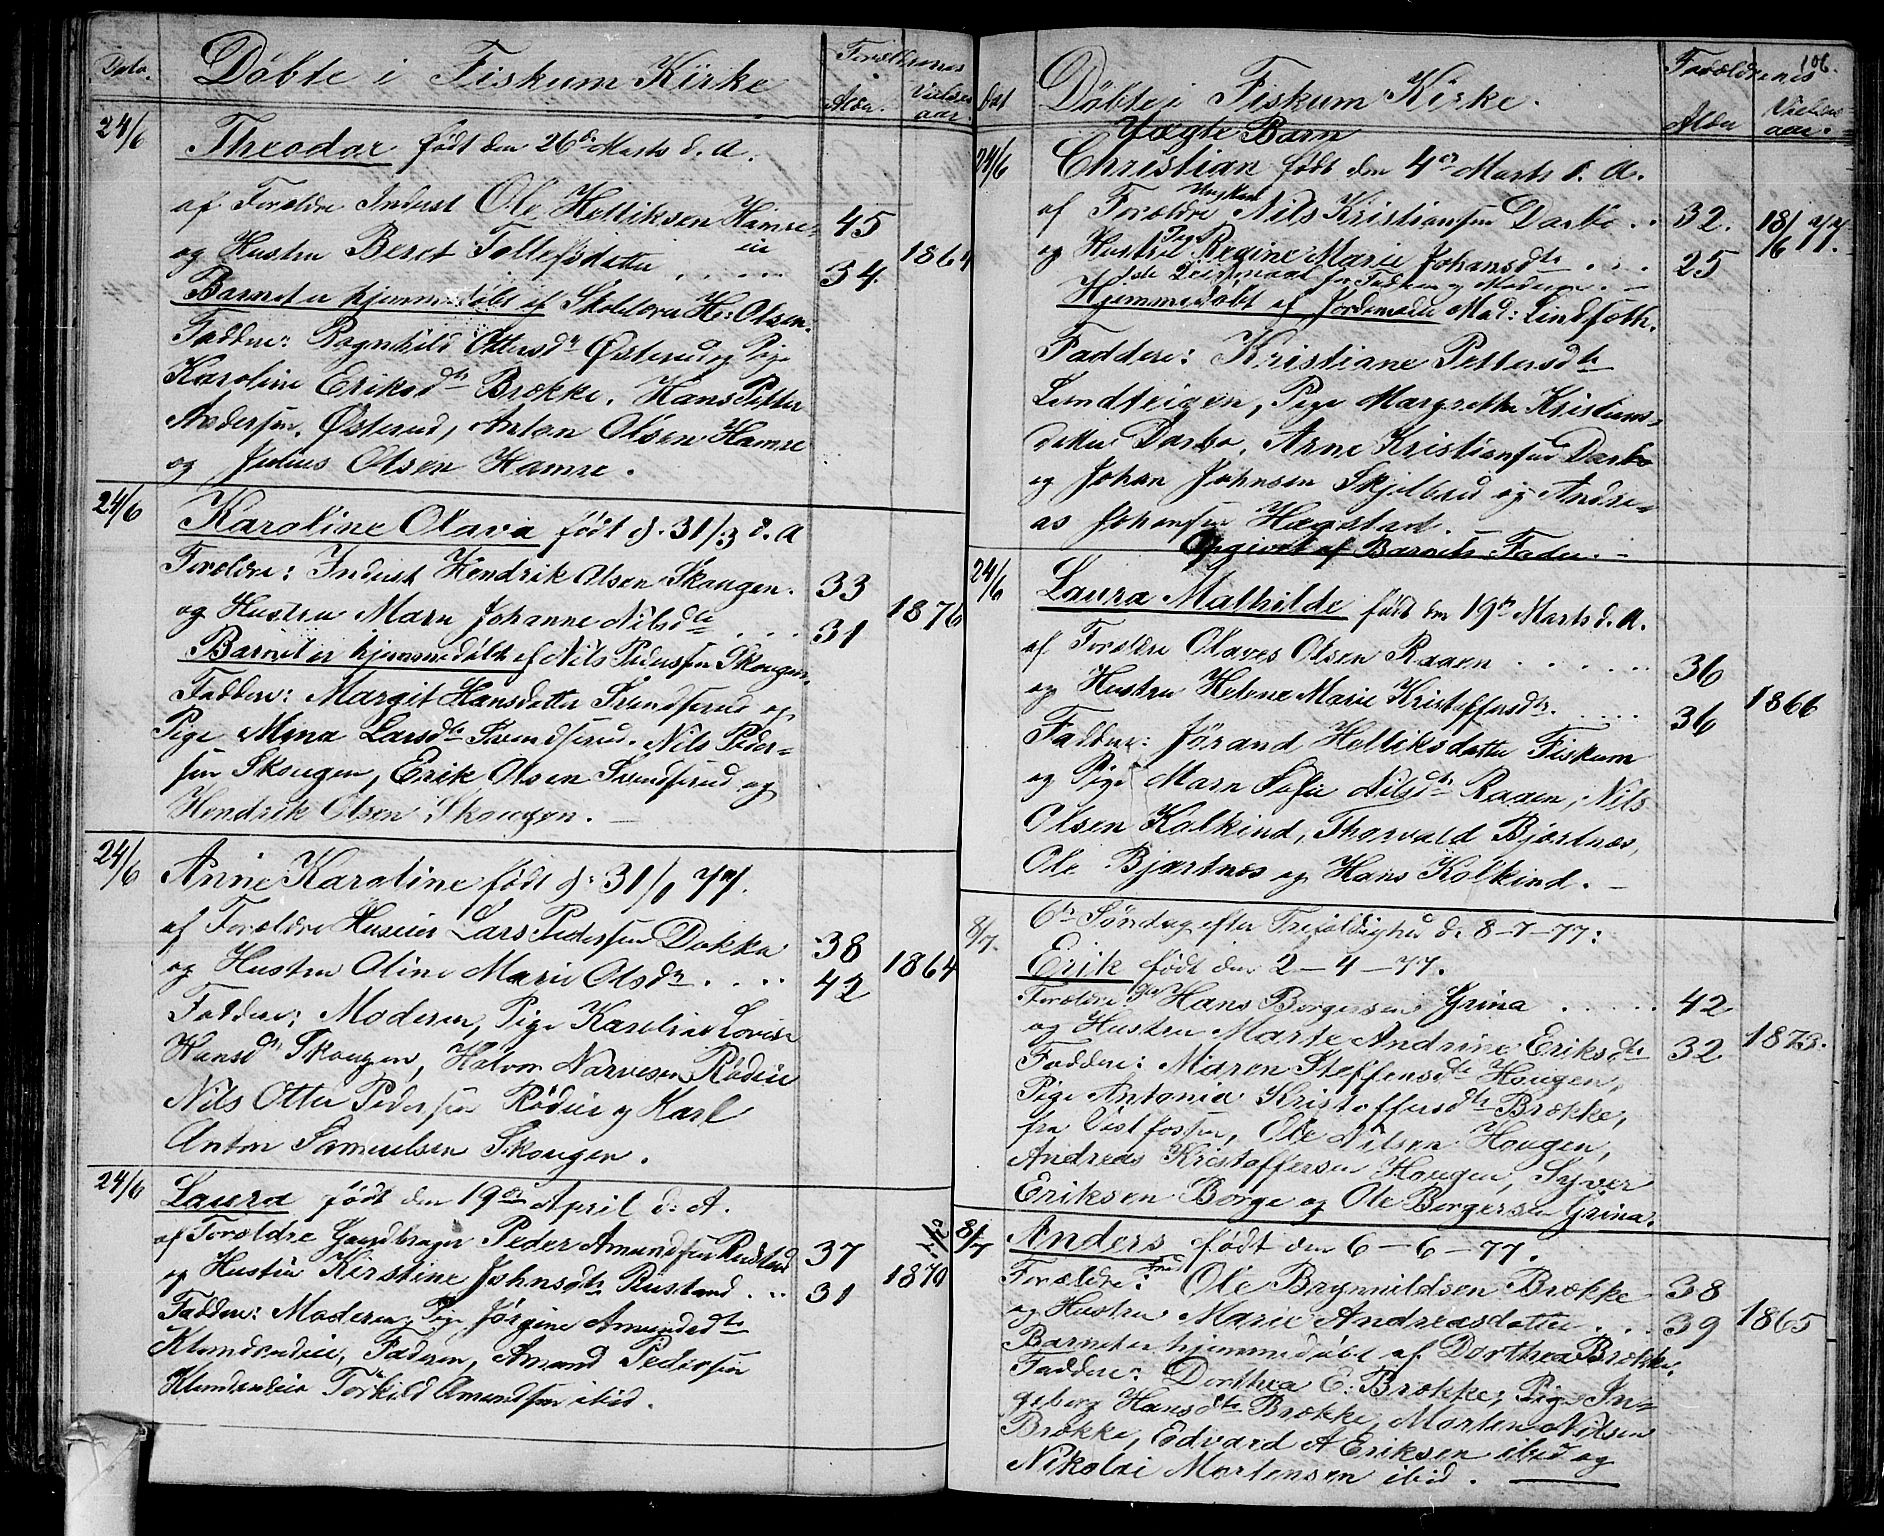 Dato.
Døbte i Fiskum Kirke
Forældrenes
Alder. Vielses aar.
24/6
Theodor født den 26de Marts d. A.
af Forældre Inderst Ole Helliksen Hamre- 45
og Hustru Beret Tollefsdatter . . . . . 34. 1864
Barnet er hjemmedøbt af Skolelærer H. Olsen.
Faddere: Ragnhild Ottersdtr Østerud og Pige
Karoline Eriksdtr Brække. Hans Petter
Andersen Østerud, Anton Olsen Hamre
og Julius Olsen Hamre.
24/6
Karoline Olava født d. 31/3 d. A
Forældre: Inderst Hendrik Olsen Skougen. 33
og Hustru Maren Johanne Nilsdtr . . . 31 1876
Barnet er hjemmedøbt af Nils Pedersen Skougen.
Faddere: Margit Hansdatter Svendserud og
Pige Mina Larsdtr Svendserud. Nils Peder-
sen Skougen, Erik Olsen Svendserud og
Hendrik Olsen Skougen. —
24/6
Anne Karoline født d. 31/1 77.
af Forældre Huseier Lars Pedersen Dokka 38
og Hustru Oline Marie Olsdtr . . . . 42 1864
Faddere: Moderen, Pige Karoline Lovise
Hansdtr Skougen, Halvor Narvesen Rødeie
Nils Otter Pedersen Rødeie og Karl
Anton Samuelsen Skougen.
24/6
Laura født den 19de April d. A.
af Forældre Gaardbruger Peder Amundsen Rustand 37
og Hustru Kirstine Johnsdtr Rustand . . 31 1870
Faddere: Moderen, Pige Jørgine Amundsdtr
Klunderudeie, Faderen, Amund Pedersen
Klunderudeie Torkild Amundsen ibid.
106.
Dat
Døbte i Fiskum Kirke.
Forældrenes
Alder Vielses aar.
Uægte Barn
24/6
Christian født den 4de Marts d. A.
af Forældre Ungkarl Nils Kristiansen Darbo . . 32. 18/6 77.
og Hustru Pige Regine Marie Johansdtr . . . . 25
1ste Leiermaal for Faderen og Moderen. —
Hjemmedøbt af Jordemoder Mad: Lindfoth.
Faddere: Kristiane Pettersdtr
Lundteigen, Pige Margrethe Kristians-
datter Darbo, Arne Kristiansen Darbo
og Johan Johnsen Skjelbred og Andre-
as Johansen Hægstad.
Opgivet af Barnets Fader. —
24/6
Laura Mathilde født den 19de Marts d. A.
af Forældre Olaves Olsen Raaen . . . . . . 36
og Hustru Helene Marie Kristoffersdtr. . . . . 36 1866
Faddere: Jørand Helliksdatter Fiskum
og Pige Maren Sofie Nilsdtr Raaen, Nils
Olsen Kolkind, Thorvald Bjørtnæs,
Ole Bjærtnæs og Hans Kolkind. —
8/7.
6te Søndag efter Trefoldighed d. 8-7-77:
Erik født den 2-4-77.
Forældre Hans Borgersen Grina . . . . . 42
og Hustru Marte Andrine Eriksdtr 32 1873.
Faddere: Maren Steffensdtr Hougen,
Pige Antonia Kristoffersdtr Brække,
fra Vestfossen, Ole Nilsen Hougen,
Andreas Kristoffersen Hougen, Syver
Eriksen Borge og Ole Borgersen Grina.
8/7
Anders født den 6-6-77.
Forældre: Ole Brynnildsen Brække 38
og Hustru Marie Andreasdatter . . . 39 1865
Barnet er hjemmedøbt af Dorthea Brække.
Faddere: Dorthea E. Brække, Pige In-
geborg Hansdtr Brække, Morten Nilsen
Brække, Edvard A Eriksen ibid og
Nikolai Mortensen ibid.